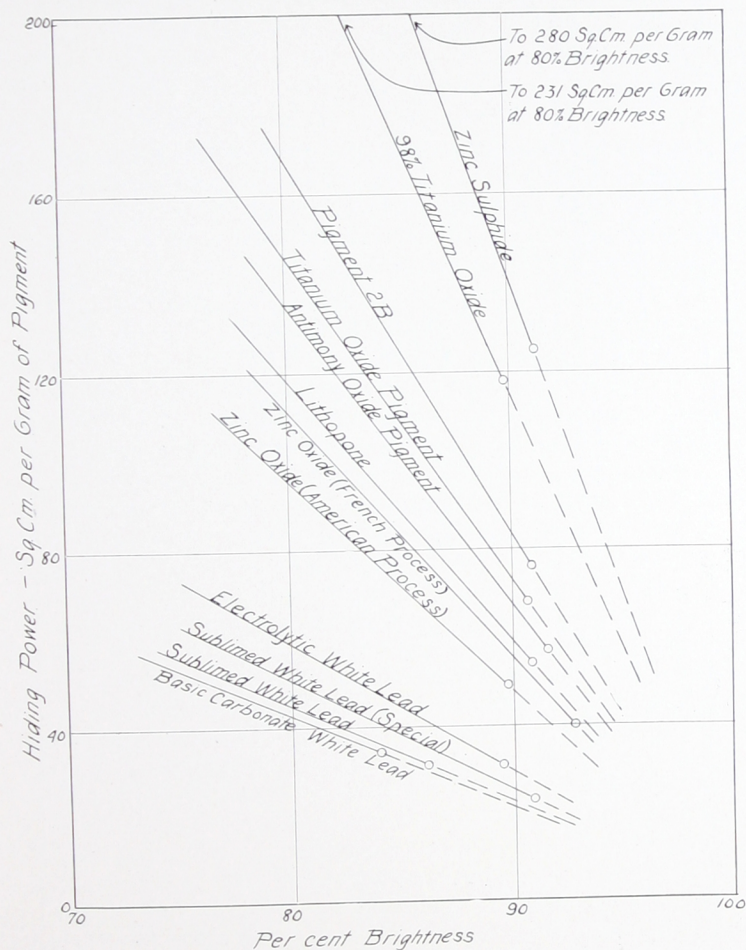 200
To 280 Sq.Cm. per Gram
at 80% Brightness.
To 231 Sq.Cm. per Gram
at 80% Brightness.
Zinc Sulphide
98% Titanium Oxide
160
Pigment 2B
Titanium Oxide Pigment
Antimony Oxide Pigment
120
Lithopone
Zinc Oxide (French Process)
Zinc Oxide (American Process)
80
Electrolytic White Lead
Sublimed White Lead (Special)
Sublimed White Lead
Basic Carbonate White Lead
40
0
70
80
90
100
Hiding Power - Sq.Cm. per Gram of Pigment
Per cent Brightness